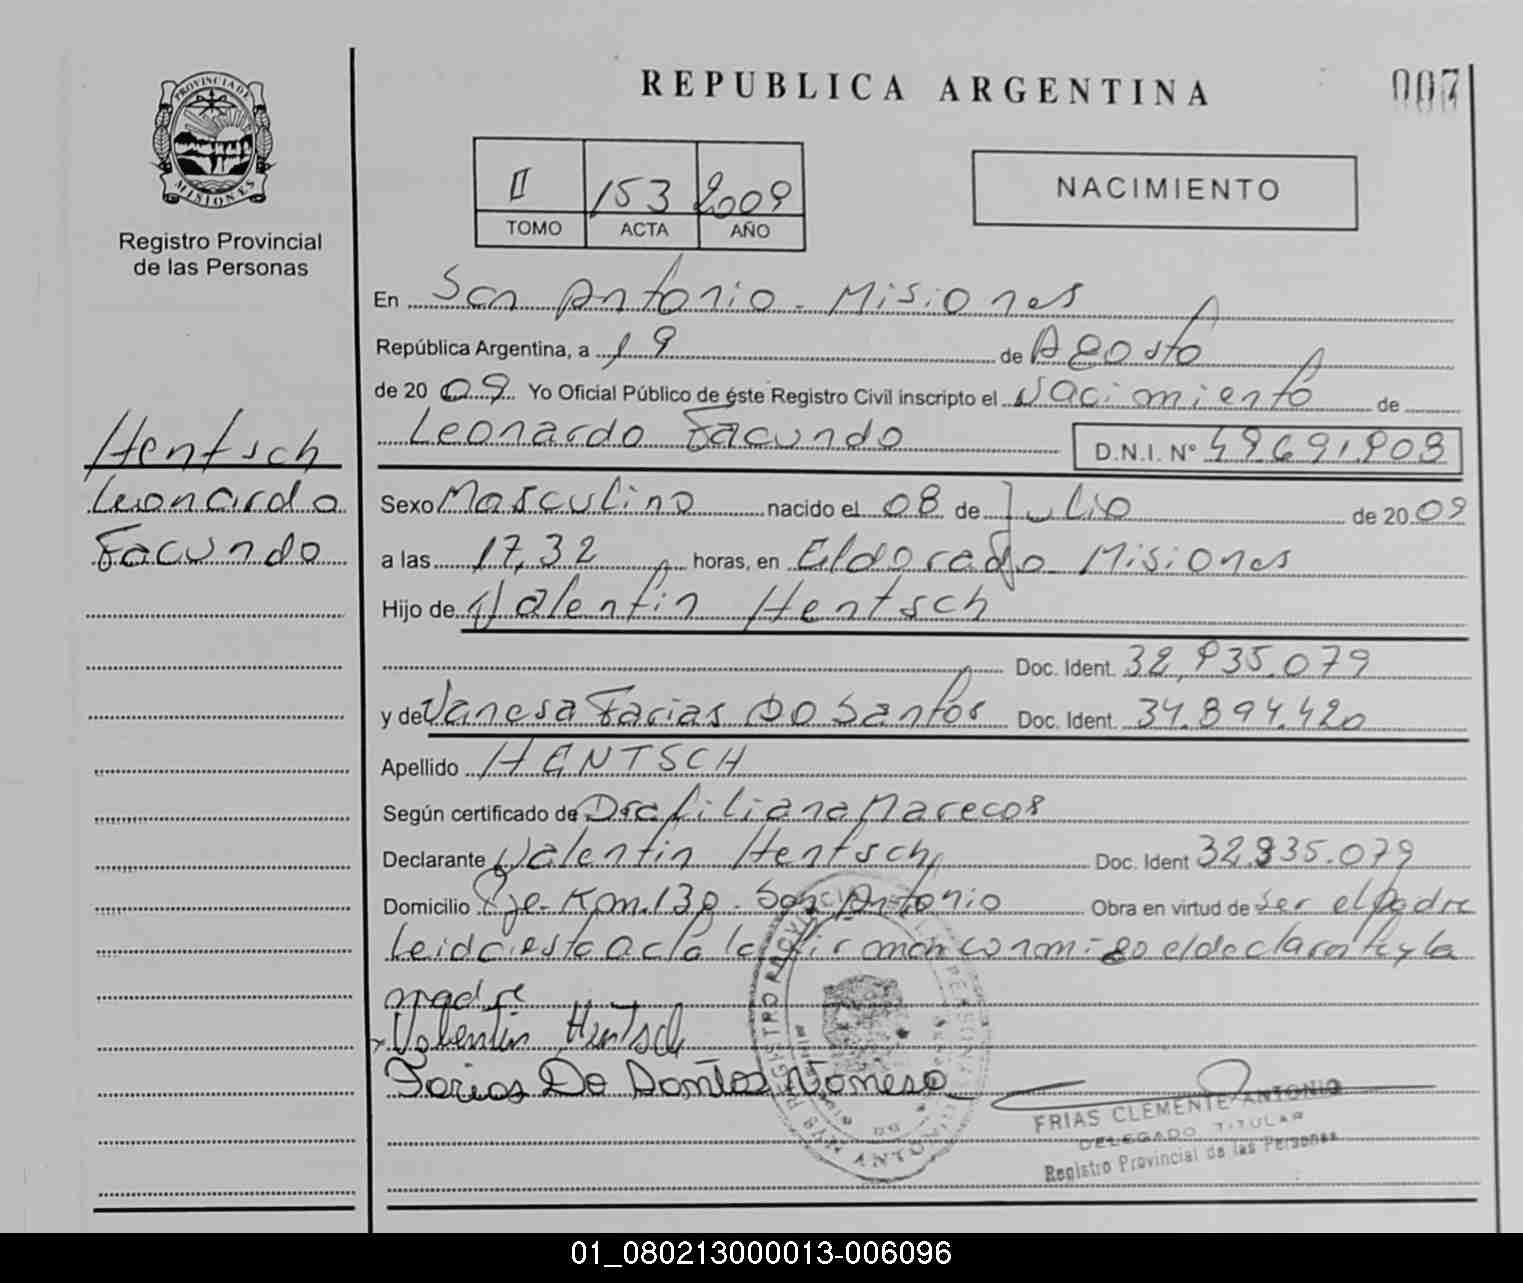 REPUBLICA ARGENTINA
007
PROVINCIA DE
MISIONES
Registro Provincial
de las Personas
II 153 2009
TOMO ACTA AÑO
NACIMIENTO
En San Antonio - Misiones
República Argentina, a 19 de Agosto
de 2009 Yo Oficial Público de éste Registro Civil inscripto el Nacimiento de
Leonardo Facundo D.N.I. Nº 49.691.903
Hentsch
Leonardo
Facundo
Sexo Masculino nacido el 08 de Julio de 2009
a las 17,32 horas, en Eldorado Misiones
Hijo de Valentin Hentsch
Doc. Ident. 32.935.079
y de Vanesa Farias Do Santos Doc. Ident. 34.894.420
Apellido HENTSCH
Según certificado de Dra Liliana Marecos
Declarante Valentin Hentsch Doc. Ident 32.935.079
Domicilio Pje. Km. 130 - San Antonio Obra en virtud de ser el padre
Leida esta acta la firman conmigo el declarante y la
madre
Valentin Hentsch
Farias Do Santos Vanesa
FRIAS CLEMENTE ANTONIO
DELEGADO TITULAR
Registro Provincial de las Personas
01_080213000013-006096